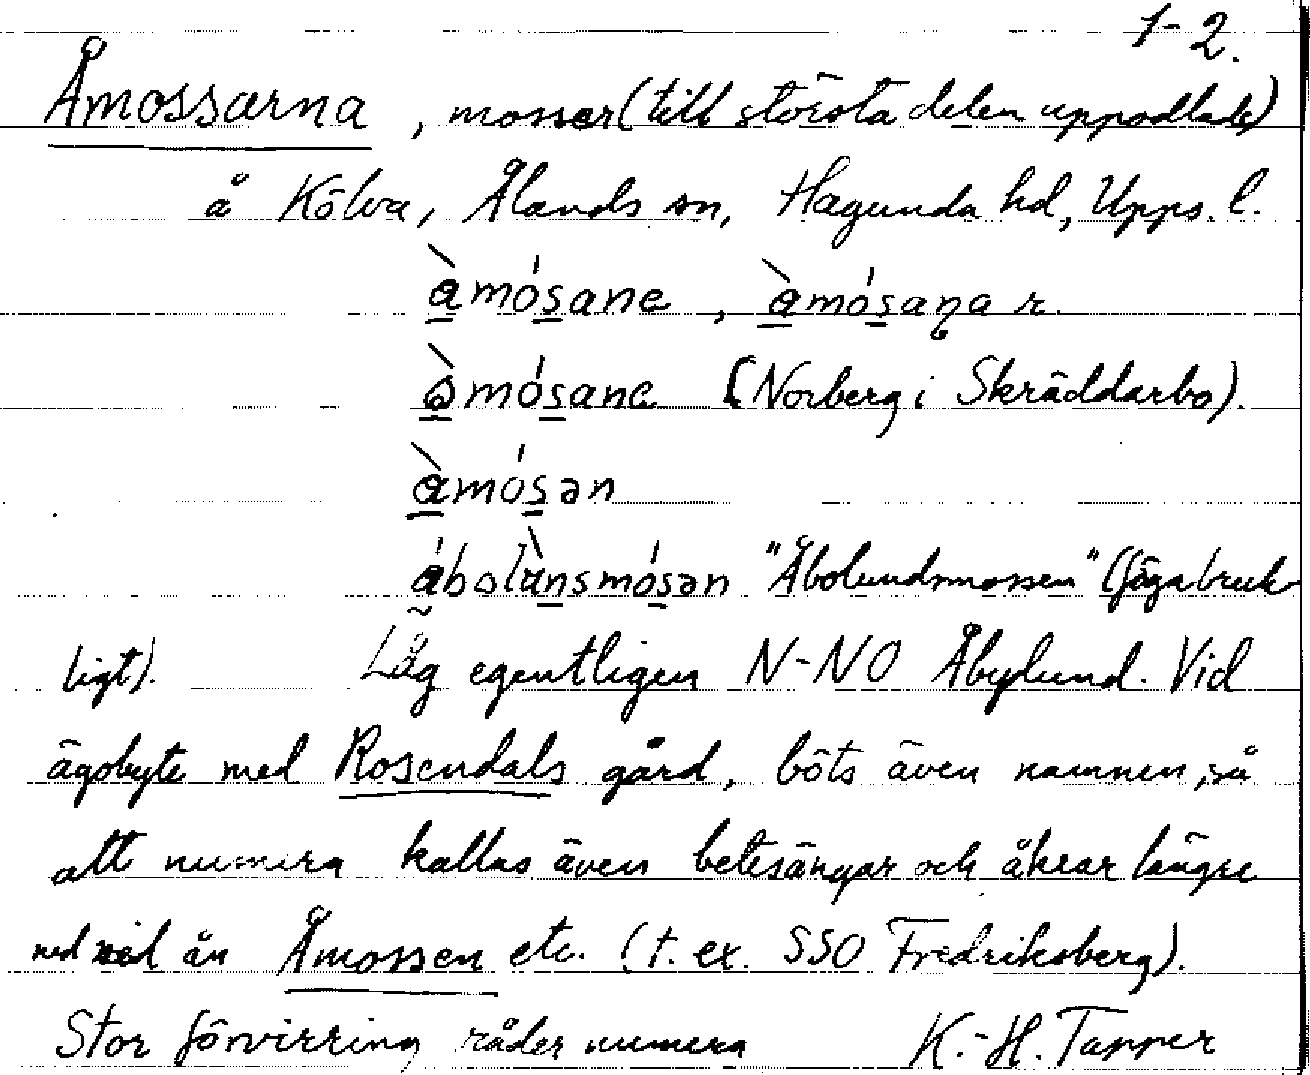 1-2.
Åmossarna, mossar (till största delen uppodlade)
å Kölva, Ålands sn, Hagunda hd, Upps. l.
àmósane, àmósaṇa r.
òmósane (Norberg i Skräddarbo).
àmósən
ábolùnsmósən "Åbolundsmossen" (föga bruk-
ligt). Låg egentligen N-NO Åbylund. Vid
ägobyte med Rosendals gård, böts även namnen, så
att numera kallas även betesängar och åkrar längre
ned vid ån Åmossen etc. (t. ex. SSO Fredriksberg).
Stor förvirring råder numera K.-H. Tapper